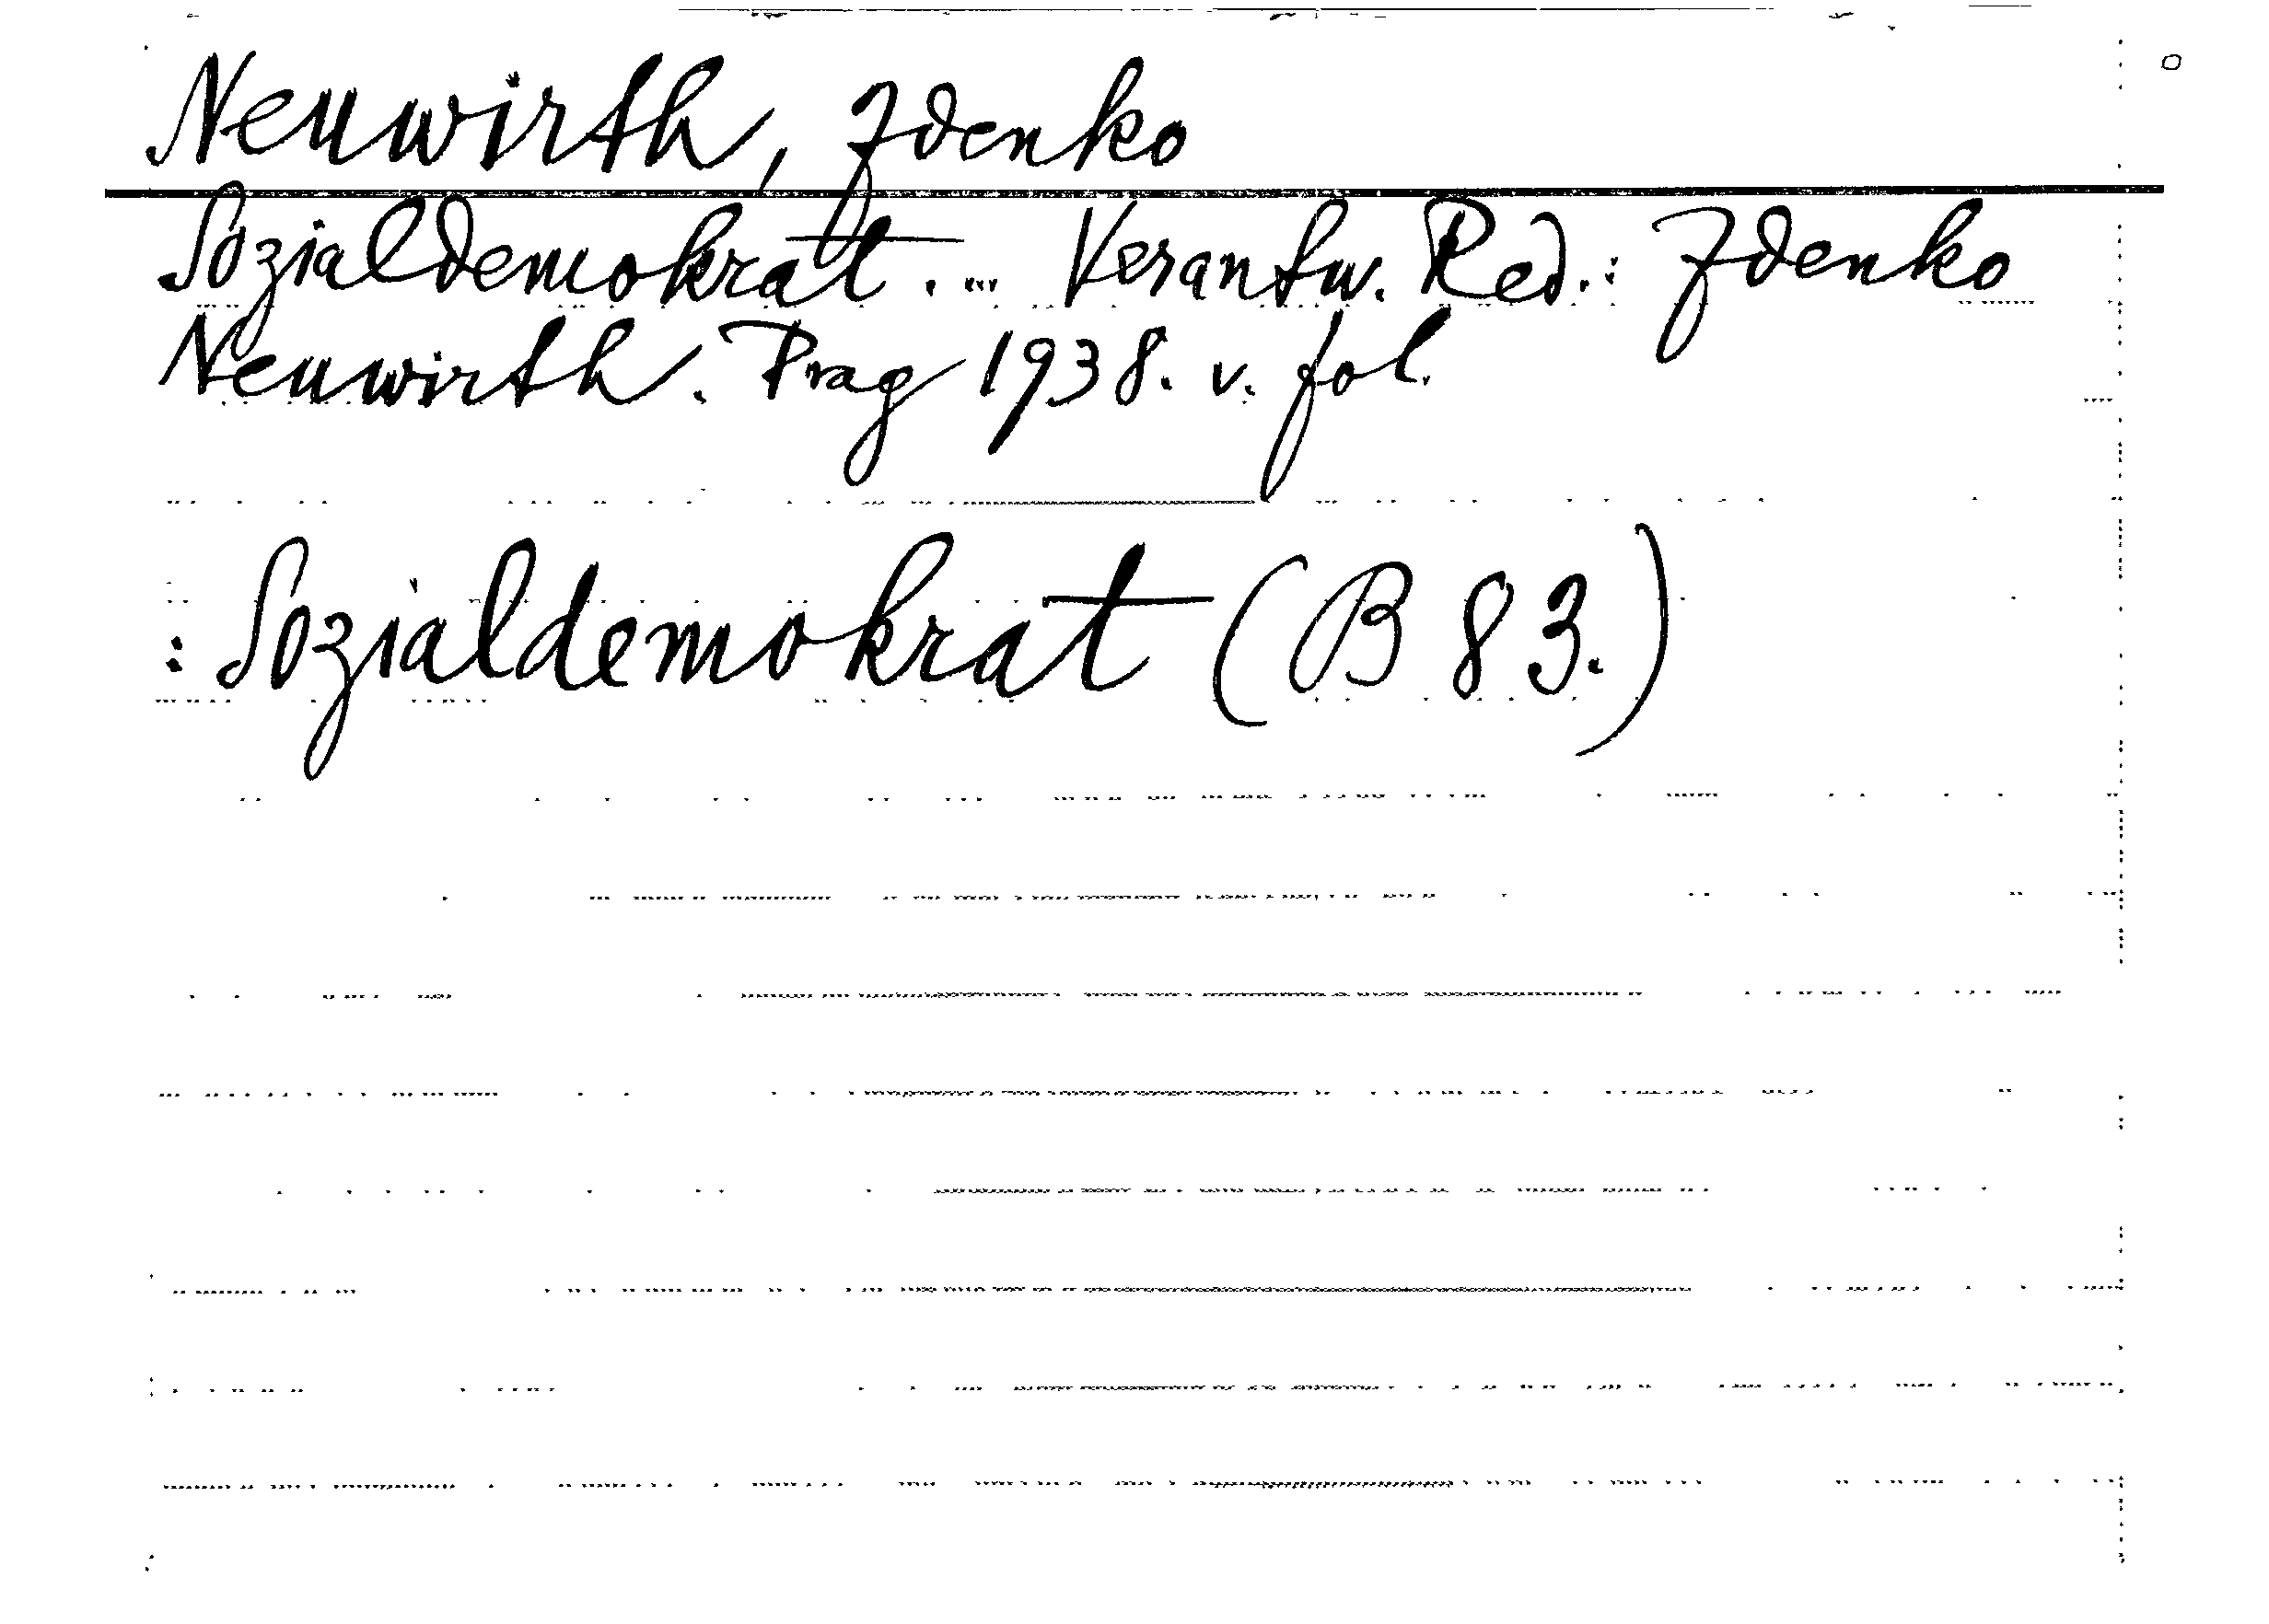 Neuwirth, Zdenko
Sozialdemokrat. ... Verantw. Red.: Zdenko
Neuwirth. Prag 1938. v. fol.
: Sozialdemokrat (B 83.)